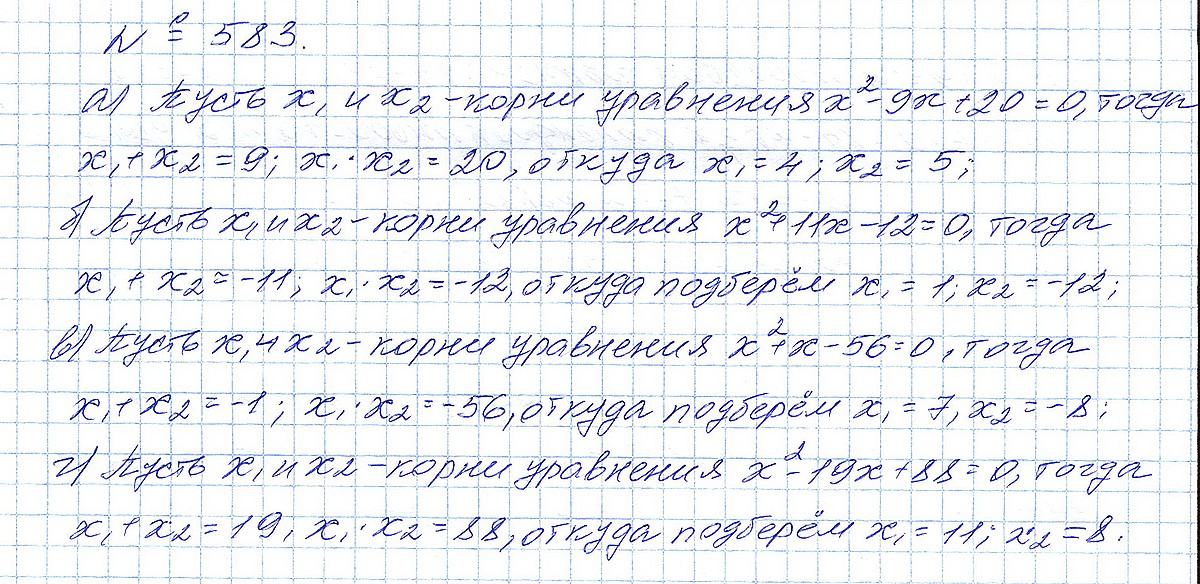 № 583.
а) Пусть x₁ и x₂ - корни уравнения x² - 9x + 20 = 0, тогда
x₁ + x₂ = 9; x₁ · x₂ = 20, откуда x₁ = 4; x₂ = 5;
б) Пусть x₁ и x₂ - корни уравнения x² + 11x - 12 = 0, тогда
x₁ + x₂ = -11; x₁ · x₂ = -12, откуда подберём x₁ = 1; x₂ = -12;
в) Пусть x₁ и x₂ - корни уравнения x² + x - 56 = 0, тогда
x₁ + x₂ = -1; x₁ · x₂ = -56, откуда подберём x₁ = 7, x₂ = -8;
г) Пусть x₁ и x₂ - корни уравнения x² - 19x + 88 = 0, тогда
x₁ + x₂ = 19, x₁ · x₂ = 88, откуда подберём x₁ = 11; x₂ = 8.